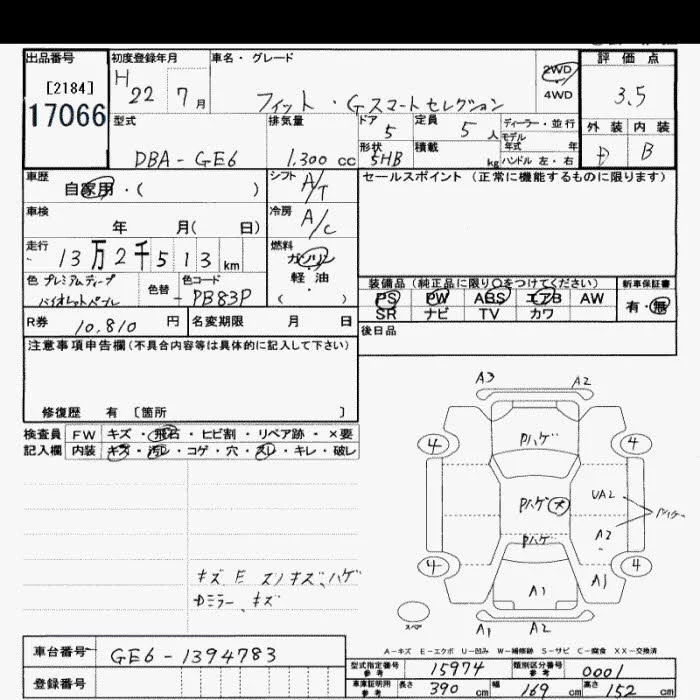 出品番号 初度登録年月 車名・グレード 評価点
[2184] H 22 7月 フィット・Gスマートセレクション 2WD 3.5
17066 4WD
型式 排気量 ドア 5 定員 5人 ディーラー・並行 外装 内装
モデル
DBA-GE6 1,300cc 形状 5HB 積載 kg 年式 年 D B
ハンドル 左・右
車歴 自家用・( ) シフト A/T セールスポイント(正常に機能するものに限ります)
車検 年 月( 日) 冷房 A/C
走行 13万2千513km 燃料 ガソリン
軽油
( )
色 プレミアムディープバイオレットパール 色替 色コード -PB83P
装備品(純正品に限り○をつけてください) 新車保証書
PS PW ABS エアB AW 有・無
SR ナビ TV カワ
R券 10,810円 名変期限 月 日 後日品
注意事項申告欄(不具合内容等は具体的に記入して下さい)
修復歴 有 [箇所 ]
検査員 FW キズ・飛石・ヒビ割・リペア跡・×要
記入欄 内装 キズ・汚レ・コゲ・穴・スレ・キレ・破レ
A3 A2
4 Pハゲ 4
Pハゲ 大 UA2 Pハゲ
A2
Pハゲ
4 A1 A1 4
スペア A1 A2
A-キズ E-エクボ U-凹み W-補修跡 S-サビ C-腐食 XX-交換済
車台番号 GE6-1394783
登録番号
型式指定番号 参考 15974 類別区分番号 参考 0001
車庫証明用 参考 長さ 390cm 幅 169cm 高さ 152cm